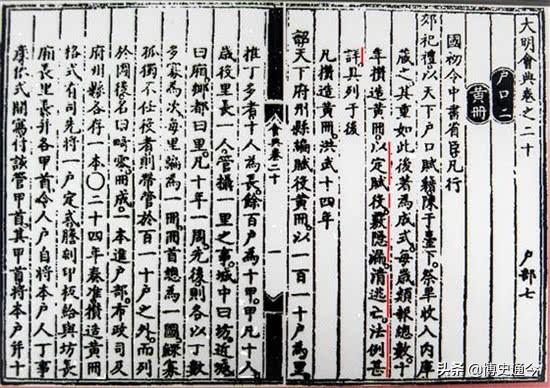 大明會典卷之二十
戶部七
戶口二
黃冊
國初令中書省臣凡行
郊祀禮以天下戶口賦籍陳于臺下祭畢收入內庫
藏之其重如此後著為成式每歲類報總數十
年攢造黃冊以定賦役覈隱漏清逃亡法例甚
詳具列于後
凡攢造黃冊洪武十四年
詔天下府州縣編賦役黃冊以一百一十戶為里
會典卷二十
一
推丁多者十人為長餘百戶為十甲甲凡十人
歲役里長一人管攝一里之事城中曰坊近城
曰廂鄉都曰里凡十年一周先後則各以丁數
多寡為次每里編為一冊冊首總為一圖鰥寡
孤獨不任役者則帶管於百一十戶之外而列
於圖後名曰畸零冊成一本進戶部布政司及
府州縣各存一本〇二十四年奏准攢造黃冊
格式有司先將一戶定式謄刻印板給與坊長
廂長里長并各甲首令人戶自將本戶人丁事
產依式開寫付該管甲首其甲首將本戶并十
头条 @博史通今